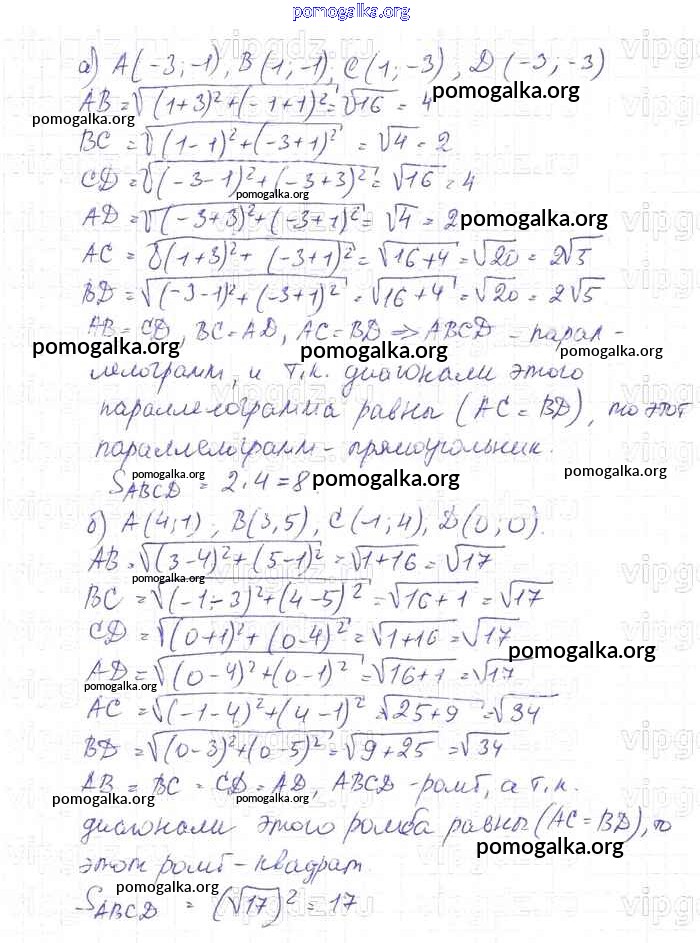 pomogalka.org
а) A(-3;-1), B(1;-1), C(1;-3), D(-3;-3)
AB = √((1+3)²+(-1+1)²) = √16 = 4
pomogalka.org
pomogalka.org
BC = √((1-1)²+(-3+1)²) = √4 = 2
CD = √((-3-1)²+(-3+3)²) = √16 = 4
pomogalka.org
AD = √((-3+3)²+(-3+1)²) = √4 = 2
pomogalka.org
AC = √((1+3)²+(-3+1)²) = √16+4 = √20 = 2√5
pomogalka.org
BD = √((-3-1)²+(-3+1)²) = √16+4 = √20 = 2√5
AB = CD, BC = AD, AC = BD => ABCD - парал-
pomogalka.org pomogalka.org pomogalka.org
лелограмм, и т.к. диагонали этого
параллелограмма равны (AC = BD), то этот
параллелограмм - прямоугольник.
pomogalka.org pomogalka.org pomogalka.org
S ABCD = 2·4 = 8
б) A(4;1), B(3,5), C(-1;4), D(0;0).
pomogalka.org
AB = √((3-4)²+(5-1)²) = √1+16 = √17
pomogalka.org
BC = √((-1-3)²+(4-5)²) = √16+1 = √17
CD = √((0+1)²+(0-4)²) = √1+16 = √17
pomogalka.org
AD = √((0-4)²+(0-1)²) = √16+1 = √17
pomogalka.org
AC = √((-1-4)²+(4-1)²) = √25+9 = √34
BD = √((0-3)²+(0-5)²) = √9+25 = √34
AB = BC = CD = AD, ABCD - ромб, а т.к.
pomogalka.org pomogalka.org
диагонали этого ромба равны (AC = BD), то
pomogalka.org
этот ромб - квадрат.
pomogalka.org
S ABCD = (√17)² = 17